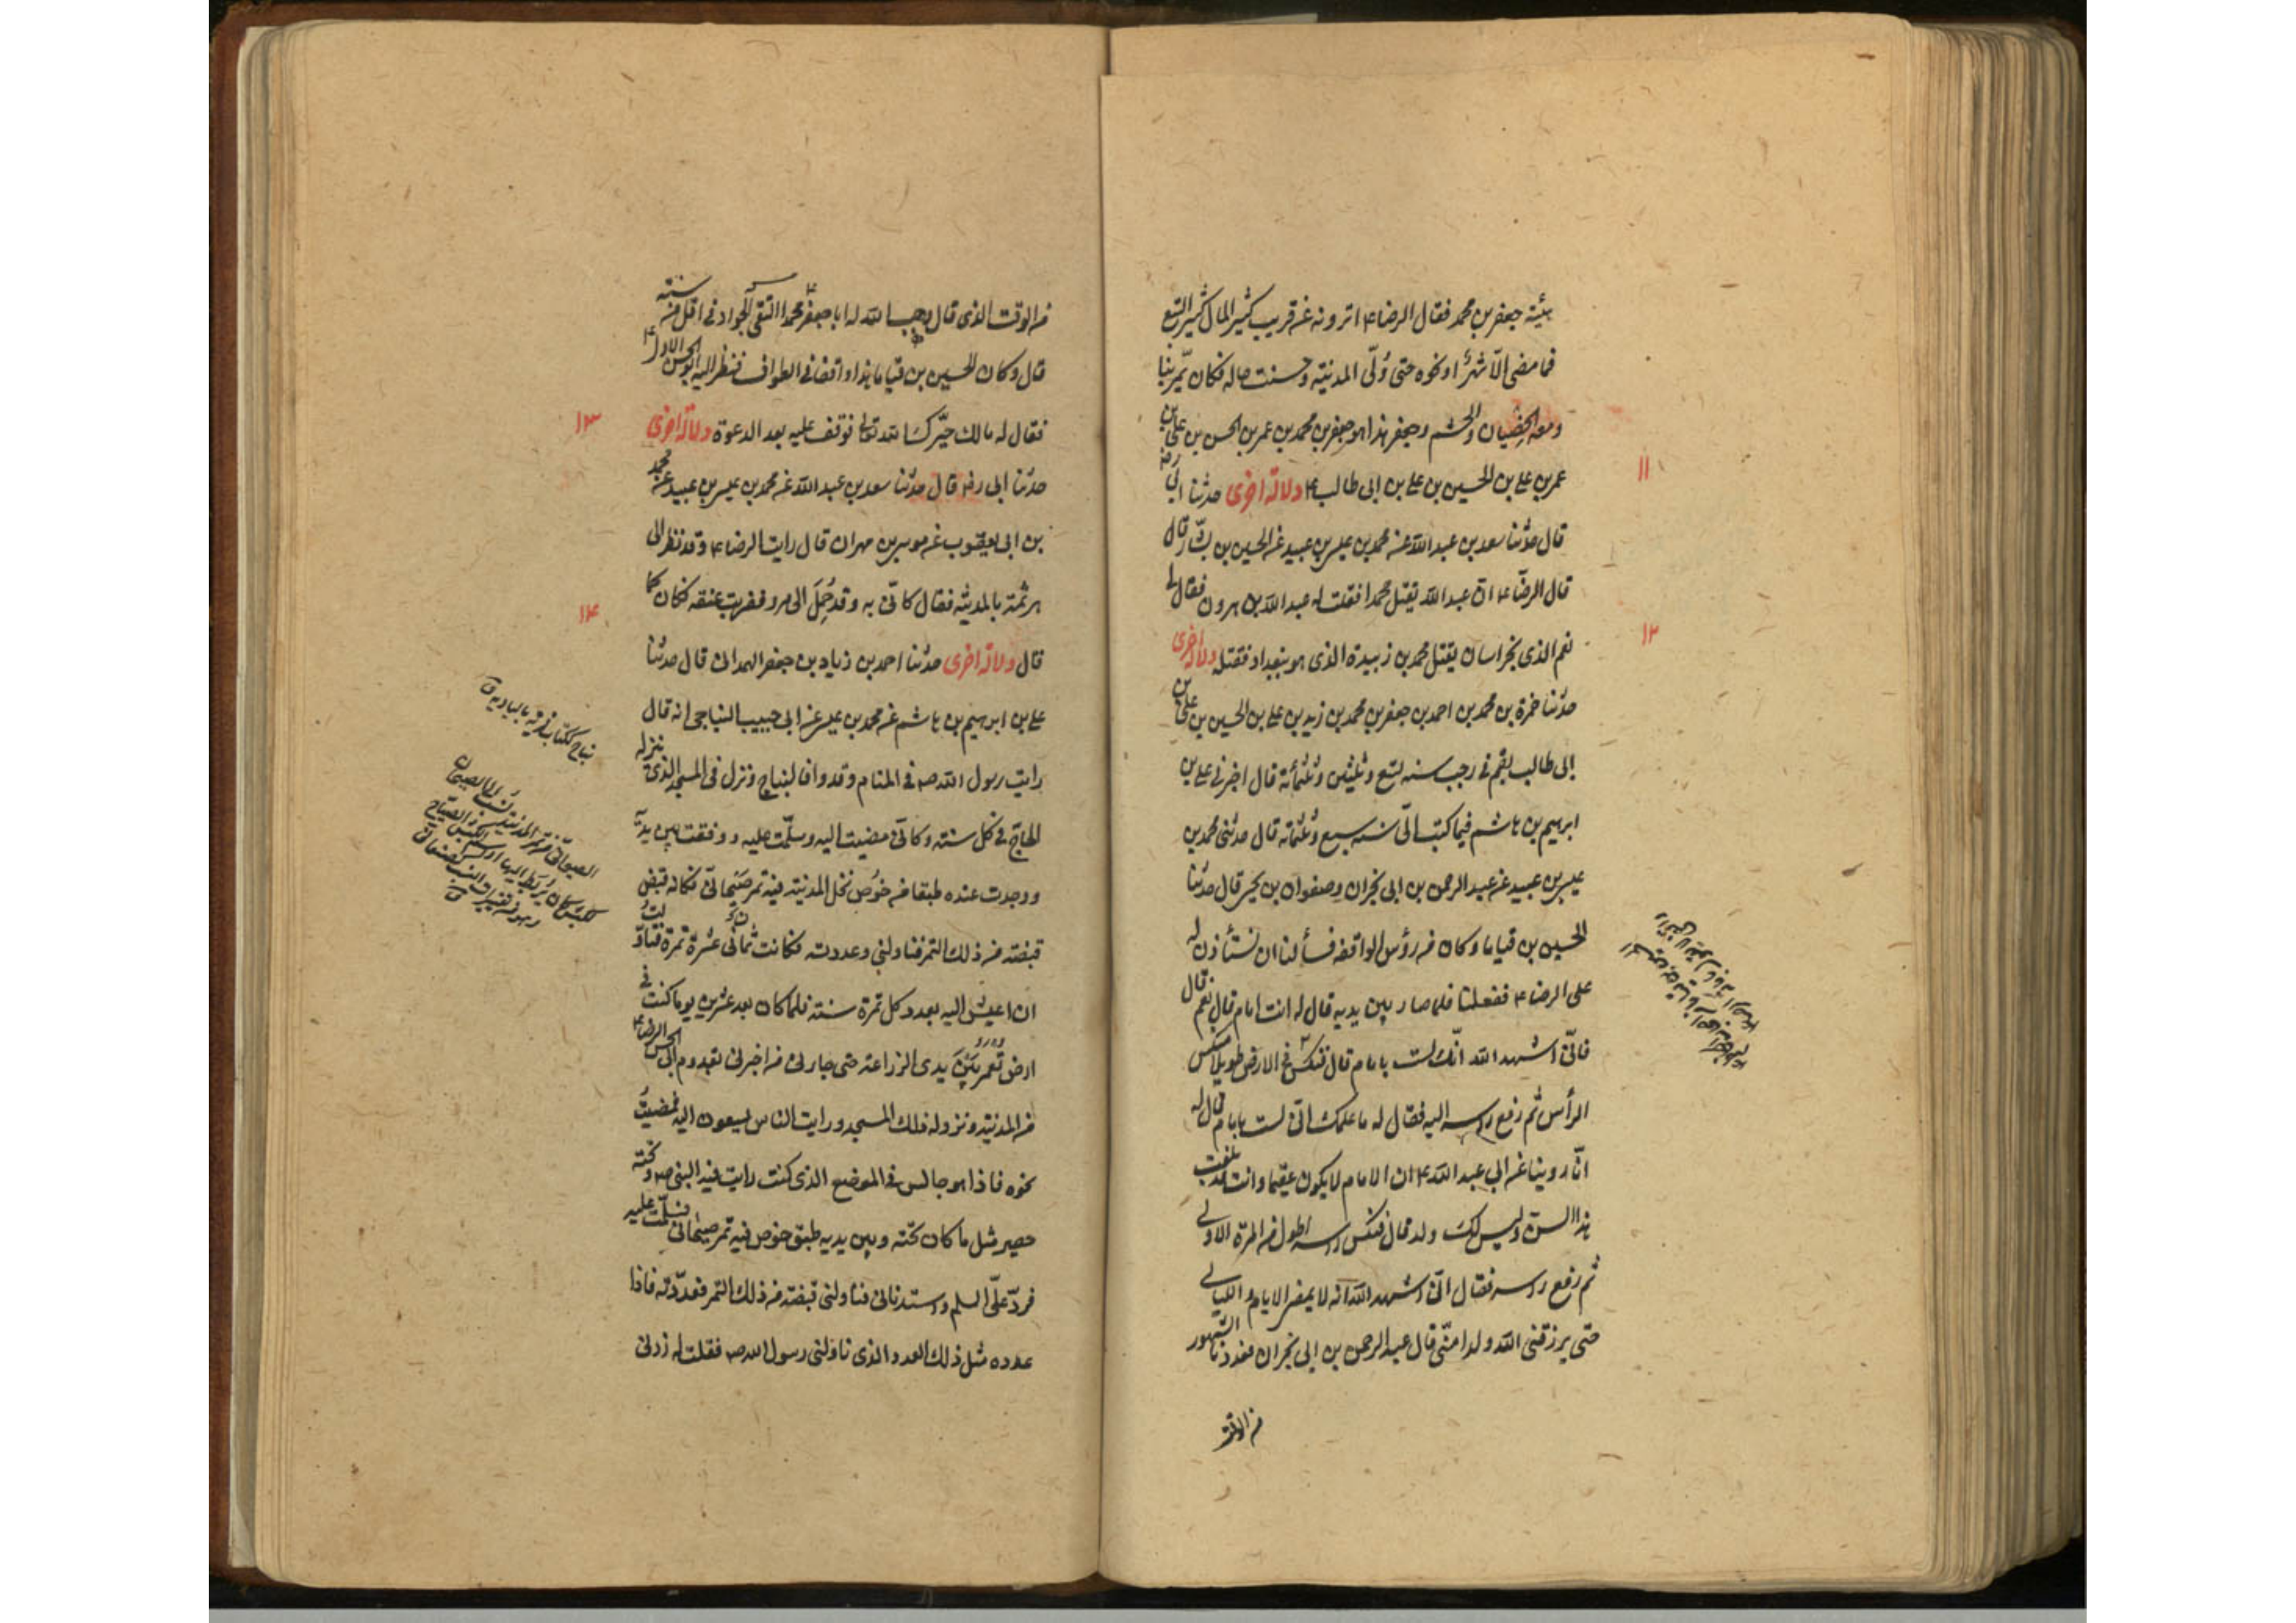 هيئة جعفر بن محمد فقال الرضا ع اترونه عن قريب كثير المال كثير التبع
فما مضى الّا شهرٌ او نحوه حتى وُلّى المدينة وحسنت حاله فكان يمّر بنا
ومعه الخصيان والحشم وجعفر هذا هو جعفر بن محمد بن عمر بن الحسن بن على بن
عمر بن على بن الحسين بن على بن ابى طالب ع دلالة اخرى حدثنا ابى رضه
۱۱
قال حدثنا سعد بن عبد الله عن محمد بن عيسى بن عبيد عن الحسين بن بشّار قال
قال الرضا ع انّ عبد الله يقتل محمدا فقلت له عبد الله بن هرون فقال لى
نعم الذى بخراسان يقتل محمد بن زبيدة الذى هو ببغداد فقتله دلالة اخرى
۱۲
حدثنا حمزة بن محمد بن احمد بن جعفر بن محمد بن زيد بن على بن الحسين بن على بن
ابى طالب بقم فى رجب سنه تسع وثلثين وثلثمائة قال اخبرنى على بن
ابرهيم بن هاشم فيما كتب الىّ سنه سبع وثلثمائه قال حدثنى محمد بن
عيسى بن عبيد عن عبد الرحمن بن ابى نجران وصفوان بن يحيى قال حدثنا
الحسين بن قياما وكان من رؤس الواقفة فسألنا ان نستأذن له
على الرضا ع ففعلنا فلما صار بين يديه قال له انت امام قال نعم قال
فانّى اشهد الله انّك لست بامام قال فنكس فى الارض طويلا منكس
الرأس ثم رفع راسه اليه فقال له ما علمك انّى لست بامام قال له
انّا روينا عن ابى عبد الله ع ان الامام لا يكون عقيما وانت قد بلغت
هذا السن وليس لك ولد قال فنكس راسه اطول من المرة الاولى
ثم رفع راسه فقال انّى اشهد الله انه لا يمضى الايام والليالى
حتى يرزقنى الله ولدا منّى قال عبد الرحمن بن ابى نجران فعددنا الشهور
من الوقت
من الوقت الذى قال فوهب الله له ابا جعفر محمدا التقى الجواد ع فى اقل من سنه
قال وكان الحسين بن قياما هذا واقفا فى الطواف فنظر اليه ابو الحسن الاول ع
فقال له مالك حيّرك الله تعالى فوقف عليه بعد الدعوة دلالة اخرى
۱۳
حدثنا ابى رضه قال حدثنا سعد بن عبد الله عن محمد بن عيسى بن عبيد عن محمد
بن ابى يعقوب عن موسى بن مهران قال رايت الرضا ع وقد نظر الى
هرثمة بالمدينة فقال كانّى به وقد حُمِلَ الى مرو فضربت عنقه فكان كما
قال دلالة اخرى حدثنا احمد بن زياد بن جعفر الهمدانى قال حدثنا
۱۴
على بن ابرهيم بن هاشم عن محمد بن عيسى عن ابى حبيب النباجى انه قال
رايت رسول الله ص فى المنام وقد وافا لنباج ونزل فى المسجد الذى ينزله
الحاجّ فى كل سنة وكانّى مضيت اليه وسلّمت عليه ووقفت بين يديه
ووجدت عنده طبقا من خُوص نخل المدينة فيه تمر صيحانىّ فكانه قبض
قبضة من ذلك التمر فناولنى وعددته فكانت ثمانى عشرة تمرة فتاولت
ان اعيش اليه بعدد كل تمرة سنة فلما كان بعد عشرين يوما كنت فى
ارض تعمر بين يدى الزراعة حتى جاءنى من اخبرنى بقدوم ابى الحسن الرضا ع
من المدينة ونزوله ذلك المسجد ورايت الناس يسعون اليه فمضيتُ
نحوه فاذا هو جالس فى الموضع الذى كنت رايت فيه النبى ص وتحته
حصير مثل ما كان تحته وبين يديه طبق خوص فيه تمر صيحانى فسلّمت عليه
فردّ علىّ السلم واستدنانى فناولنى قبضة من ذلك التمر فعددّته فاذا
عدده مثل ذلك العدد الذى ناولنى رسول الله ص فقلت له زدنى